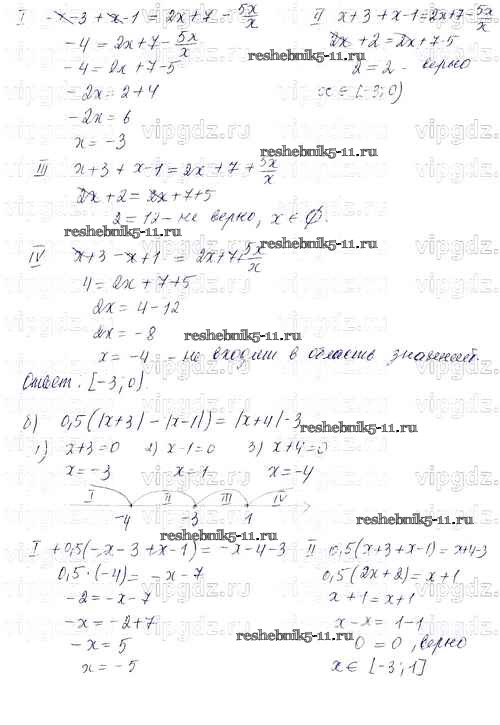 I -x-3+x-1 = 2x+7 - 5x/x
-4 = 2x+7 - 5x/x
-4 = 2x+7-5
-2x = 2+4
-2x = 6
x = -3
II x+3+x-1=2x+7-5x/x
2x+2=2x+7-5
2=2 - верно
x ∈ [-3;0)
III x+3 + x-1 = 2x+7 + 5x/x
2x+2=2x+7+5
2=12 - не верно, x ∈ ∅.
IV x+3 -x+1 = 2x+7+5x/x
4 = 2x+7+5
2x = 4-12
2x = -8
x = -4 - не входит в область значений.
Ответ: [-3;0)
б) 0,5(|x+3|-|x-1|)=|x+4|-3
1) x+3=0 2) x-1=0 3) x+4=0
x=-3 x=1 x=-4
I II III IV
-4 -3 1
I +0,5(-x-3+x-1)=-x-4-3
0,5·(-4)=-x-7
-2=-x-7
-x=-2+7
-x=5
x=-5
II 0,5(x+3+x-1)=x+4-3
0,5(2x+2)=x+1
x+1=x+1
x-x=1-1
0=0, верно
x ∈ [-3;1]
reshebnik5-11.ru
reshebnik5-11.ru
reshebnik5-11.ru
reshebnik5-11.ru
reshebnik5-11.ru
reshebnik5-11.ru
reshebnik5-11.ru
reshebnik5-11.ru
vipgdz.ru